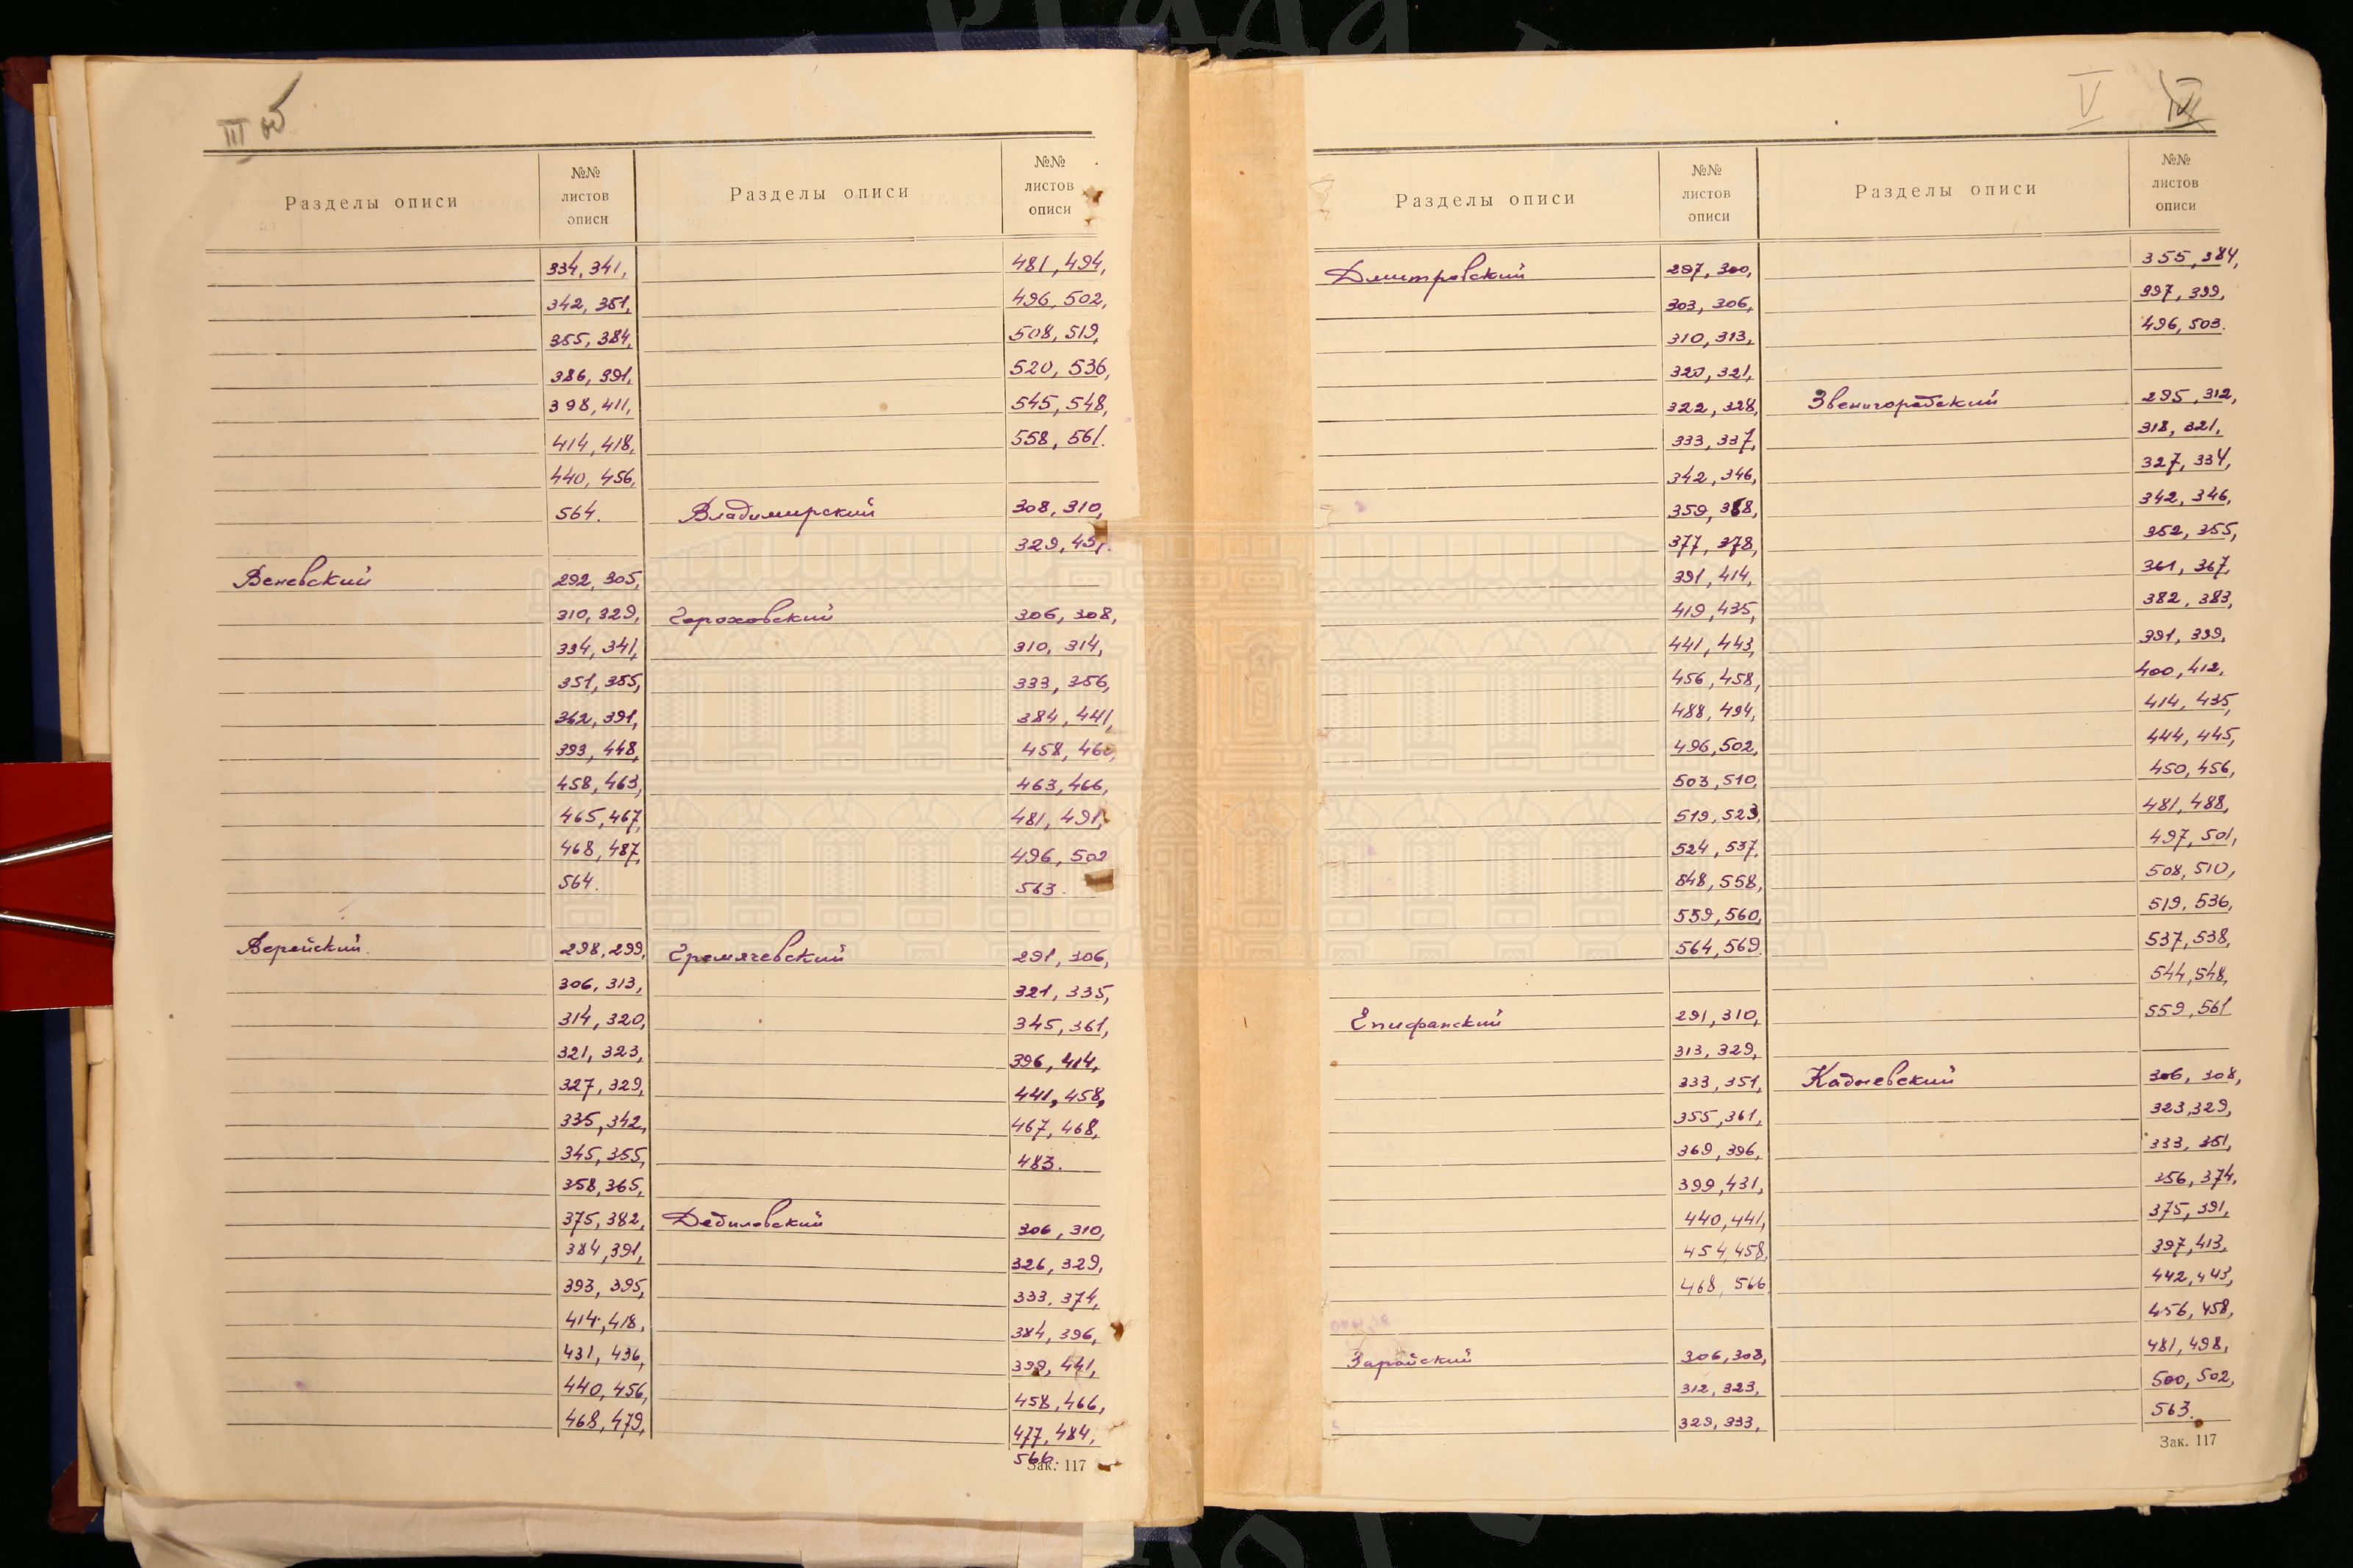 III об
Разделы описи
№№
листов
описи
334, 341,
342, 351,
355, 384,
386, 391,
398, 411,
414, 418,
440, 456,
564.
Веневский 292, 305,
310, 329,
334, 341,
351, 355,
362, 391,
393, 448,
458, 463,
465, 467,
468, 487,
564.
Верейский. 298, 299,
306, 313,
314, 320,
321, 323,
327, 329,
335, 342,
345, 355,
358, 365,
375, 382,
384, 391,
393, 395,
414, 418,
431, 436,
440, 456,
468, 479,
Разделы описи
№№
листов
описи
481, 494,
496, 502,
508, 519,
520, 536,
545, 548,
558, 561.
Владимирский 308, 310,
329, 451.
Гороховский 306, 308,
310, 314,
333, 356,
384, 441,
458, 460,
463, 466,
481, 491,
496, 502
563.
Гремячевский 291, 306,
321, 335,
345, 361,
396, 414,
441, 458,
467, 468,
483.
Дедиловский 306, 310,
326, 329,
333, 374,
384, 396,
399, 441,
458, 466,
477, 484,
566.
Зак. 117
V IV
Разделы описи
№№
листов
описи
Дмитровский 297, 300,
303, 306,
310, 313,
320, 321,
322, 328,
333, 337,
342, 346,
359, 368,
377, 378,
391, 414,
419, 435,
441, 443,
456, 458,
488, 494,
496, 502,
503, 510,
519, 523,
524, 537,
548, 558,
559, 560,
564, 569.
Епифанский 291, 310,
313, 329,
333, 351,
355, 361,
369, 396,
399, 431,
440, 441,
454, 458,
468, 566
Зарайский 306, 308,
312, 323,
329, 333,
Разделы описи
№№
листов
описи
355, 384,
397, 399,
496, 503.
Звенигородский 295, 312,
318, 321,
327, 334,
342, 346,
352, 355,
361, 367,
382, 383,
391, 399,
400, 412,
414, 435,
444, 445,
450, 456,
481, 488,
497, 501,
508, 510,
519, 536,
537, 538,
544, 548,
559, 561
Кадневский 306, 308,
323, 329,
333, 351,
356, 374,
375, 391,
397, 413,
442, 443,
456, 458,
481, 498,
500, 502,
563.
Зак. 117